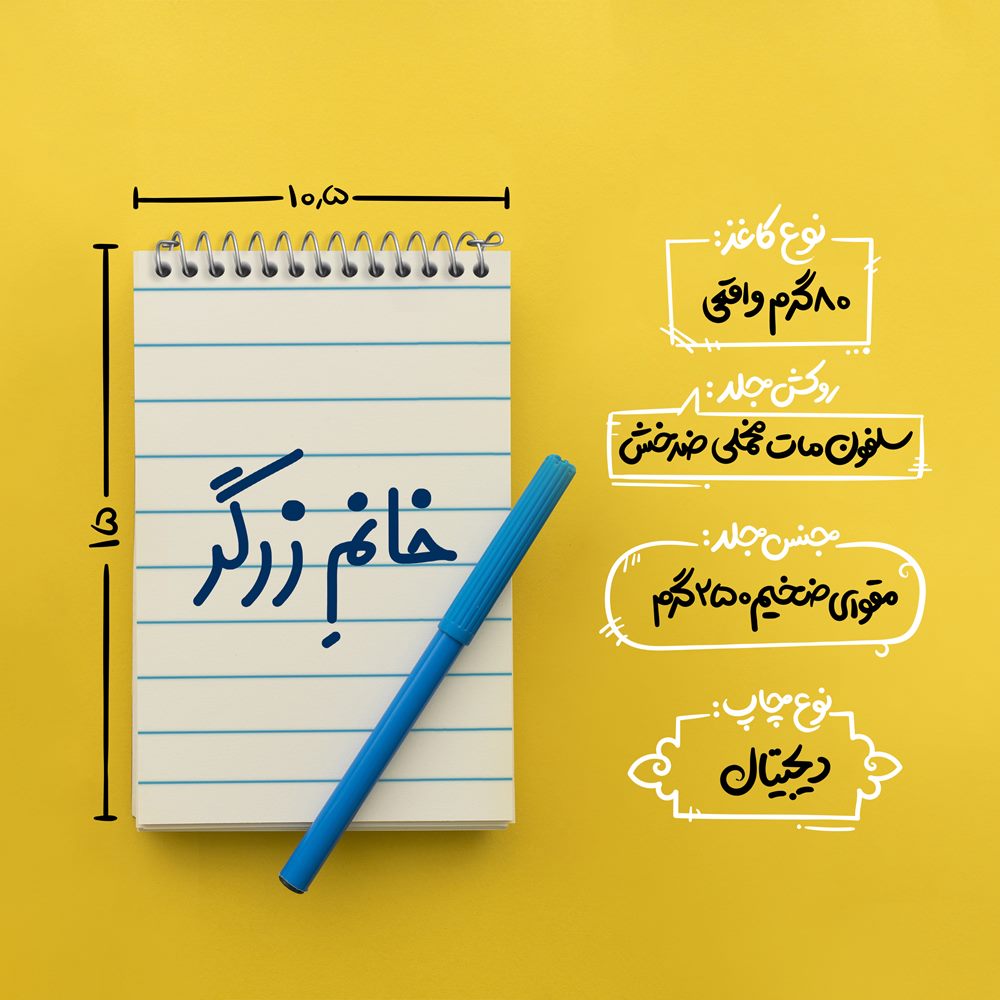 ۱۰٫۵
۱۵
خانمِ زرگر
نوع کاغذ:
۸۰ گرم واقعی
روکش جلد:
سلفون مات مخملی ضدخش
جنس جلد:
مقوای ضخیم ۲۵۰ گرم
نوع چاپ:
دیجیتال